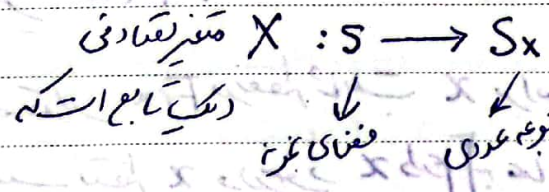 متغیر تصادفی X : S ⟶ Sx
یک تابع است که ↓ ↙
فضای نمونه عددی